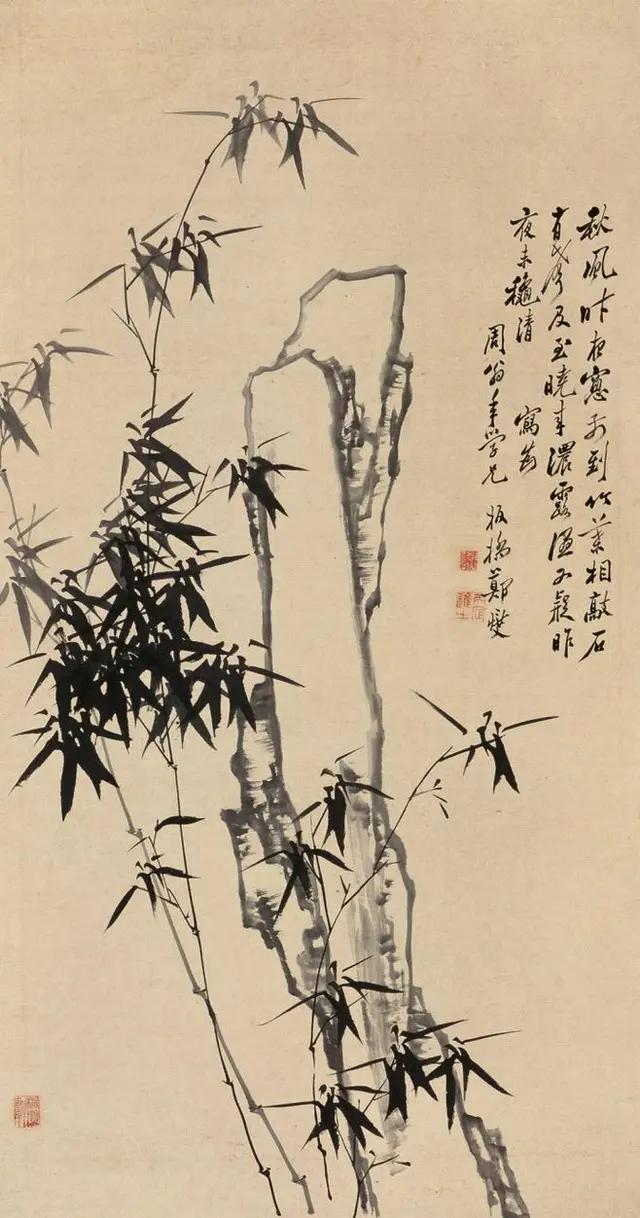 秋風昨夜窓前到竹葉相敲石
有聲及至曉來濃露溼又疑昨
夜未穐清 寫為
周翁年學兄 板橋鄭燮